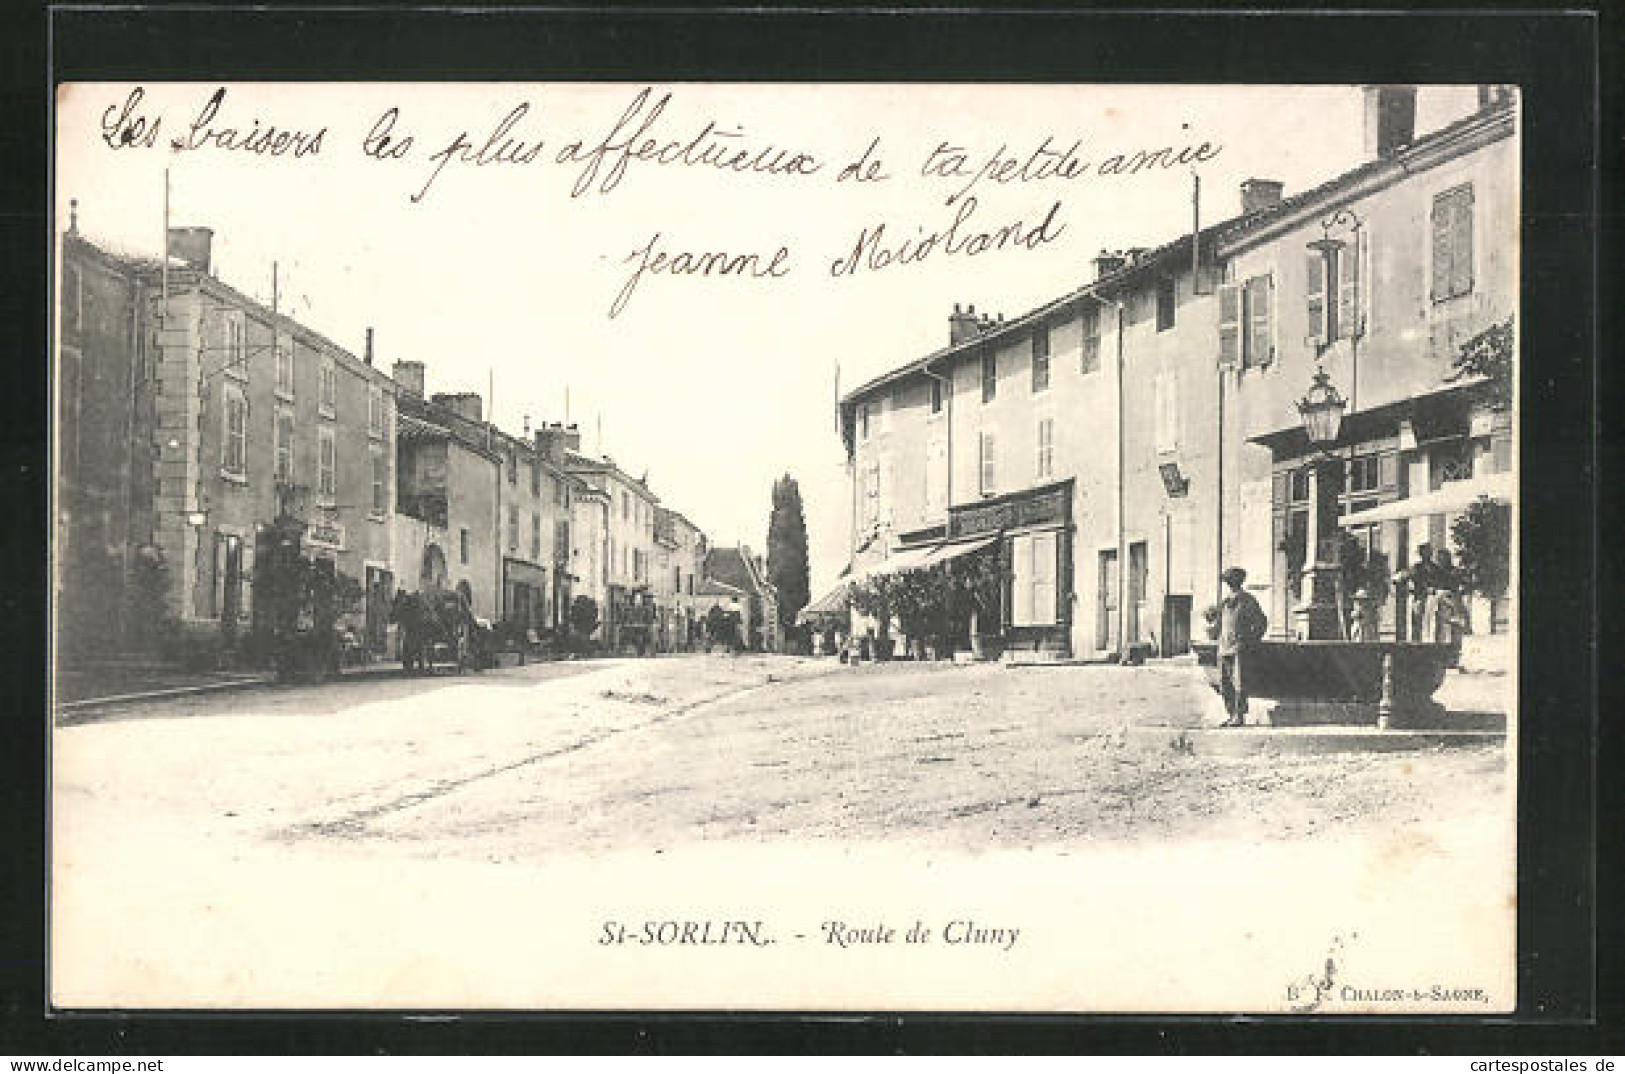 Les baisers les plus affectueux de ta petite amie
Jeanne Mioland
St-SORLIN. - Route de Cluny
B F, CHALON-s-SAONE,
cartespostales de